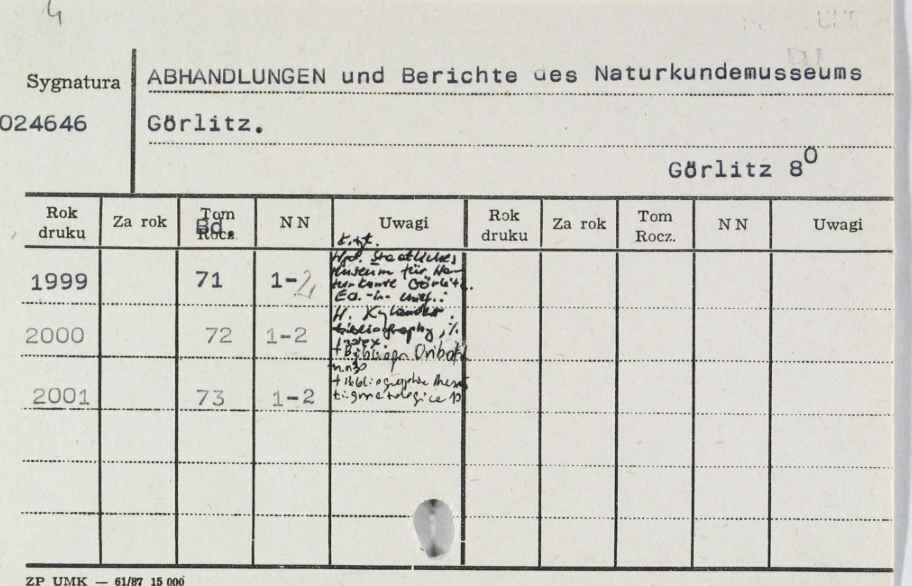 4
Sygnatura
ABHANDLUNGEN und Berichte des Naturkundemusseums
024646
Görlitz.
Görlitz 8⁰
Rok druku
Za rok
Tom Rocz.
Bd.
NN
Uwagi
Rok druku
Za rok
Tom Rocz.
NN
Uwagi
1999 71 1-2
Hrsg. Staatliches
Museum für Na-
turkunde Görlitz.
Ed.-in-chief.:
2000 72 1-2
H.
bibliography,
index.
+ Bibliogr. Oribat
2001 73 1-2
+ Bibliographia
ZP UMK — 61/87 15 000